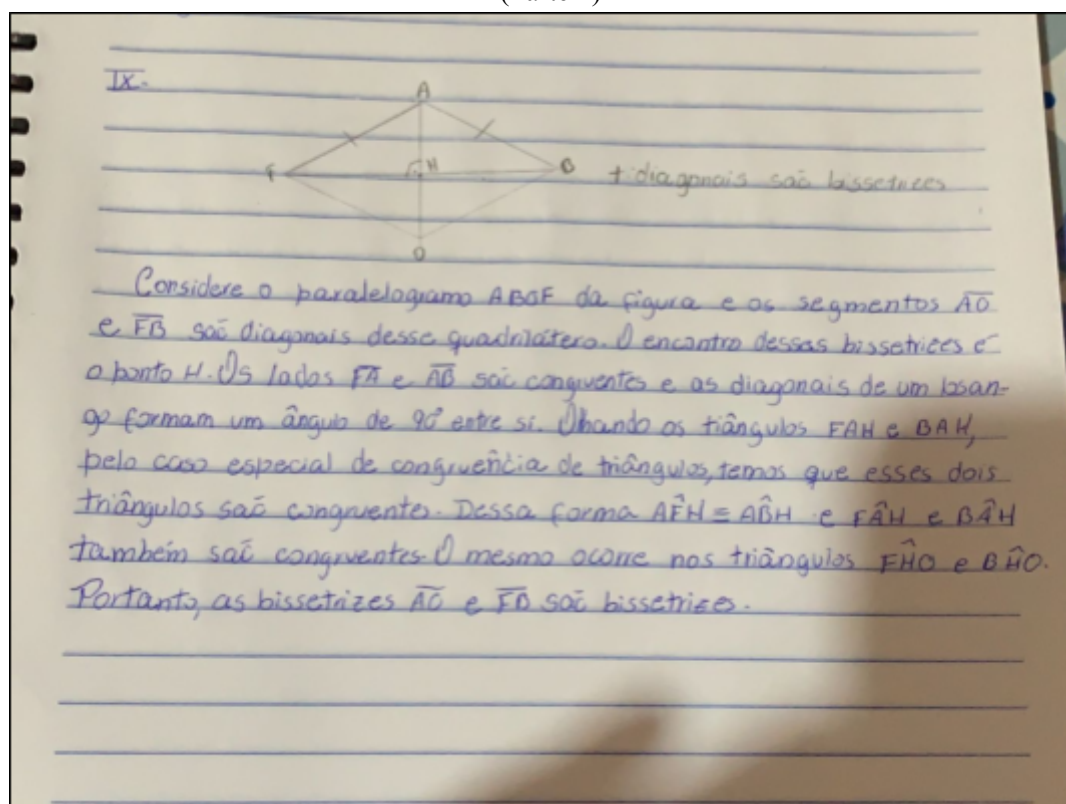 IX-
A
F
H
B
+ diagonais são bissetrices
O
Considere o paralelogramo ABOF da figura e os segmentos AO
e FB são diagonais desse quadrilátero. O encontro dessas bissetrices é
o ponto H. Os lados FA e AB são congruentes e as diagonais de um losan-
go formam um ângulo de 90° entre si. Olhando os tiângulos FAH e BAH,
pelo caso especial de congruência de triângulos, temos que esses dois
triângulos são congruente. Dessa forma AF̂H ≡ AB̂H e FÂH e BÂH
também são congruentes. O mesmo ocorre nos triângulos FĤO e BĤO.
Portanto, as bissetrizes AO e FB são bissetrizes.